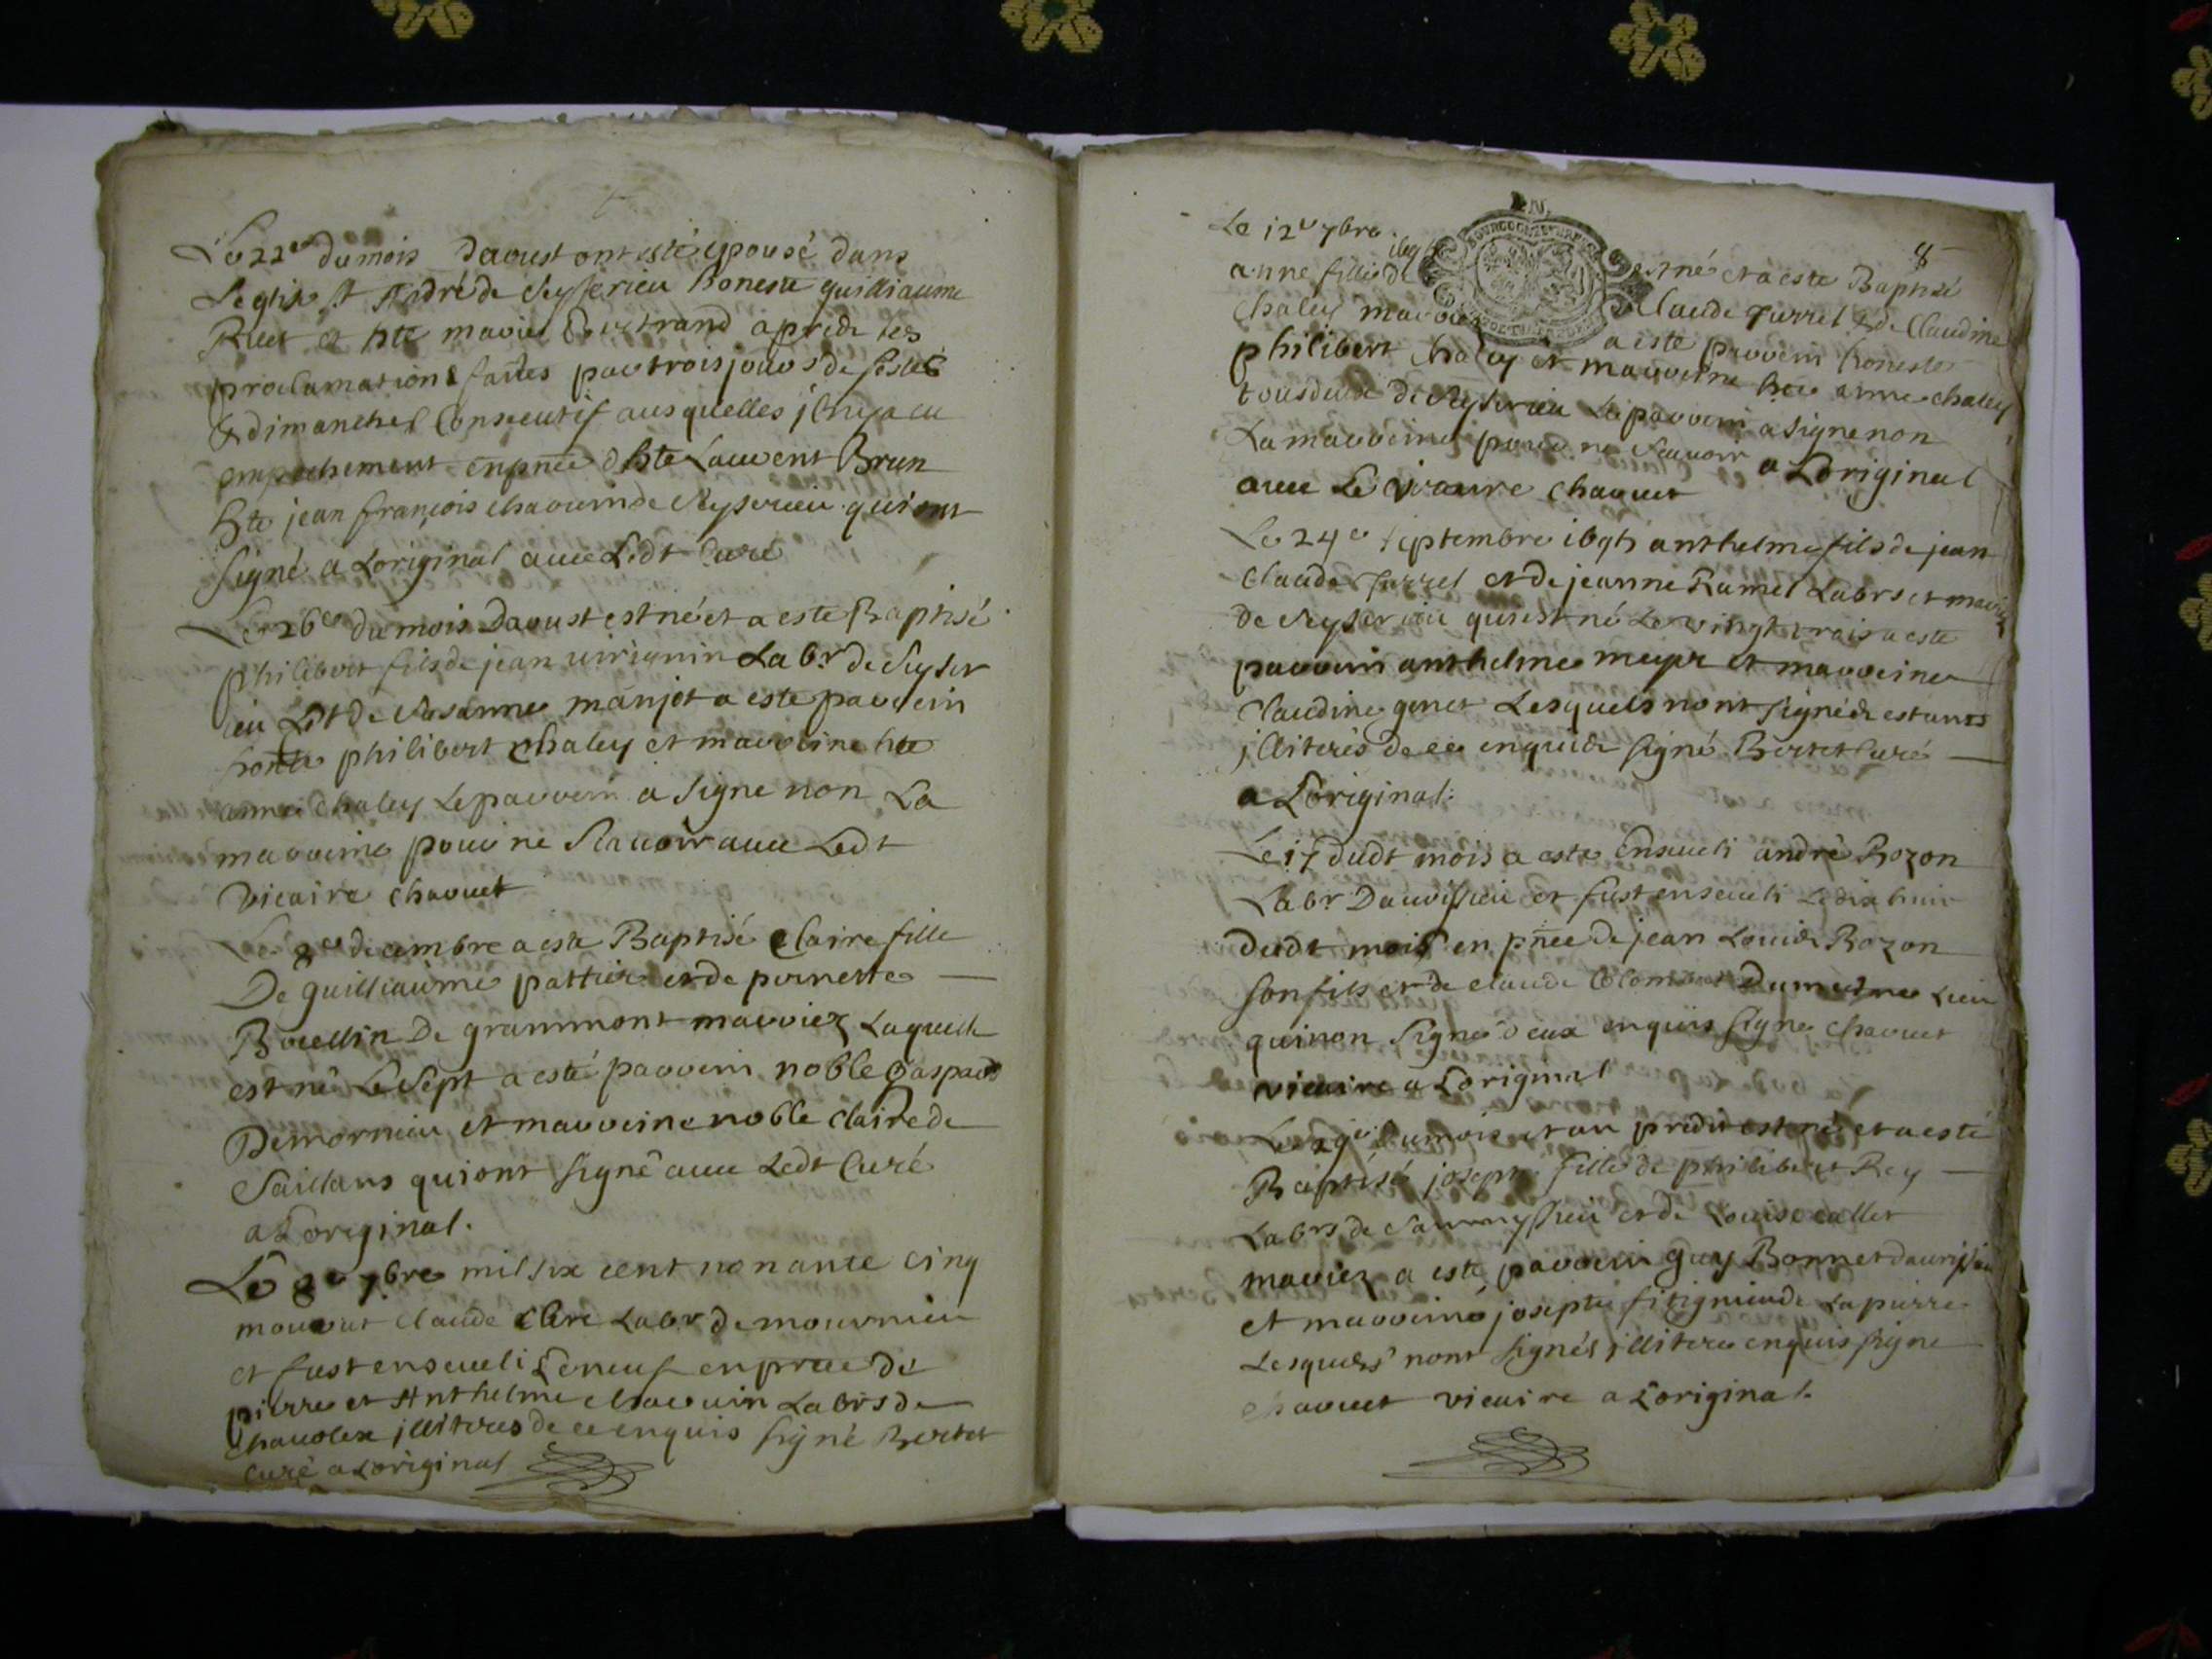 Le 22e du mois daoust ont esté epousé dans
Leglise St André de Seyserieu honeste guilliaume
Ruet et hte marie Bertrand apride les
proclamations faites par trois jours de festes
& dimanches Consecutif ausquelles il ny a eu
empechement en pnce dhte Laurent Brun
hte jean françois charuin de Seyserieu qui ont
signé a Loriginal avec Ledt Curé
Le 26e du mois daoust est né et a este Baptisé
philibert fils de jean virignin Labr de Seyser
ieu Et de Susanne manjot a este parrein
honte philibert chaley et marreine hte
anne chaley Le parrein a signe non La
marreine pour ne scavoir avec Ledt
vicaire charvet
Le 8e decembre a este Baptisé Claire fille
De guilliaume pattier et de pernette
Bovellin De grammont mariez Laquelle
est né Le sept a esté parrein noble Gaspard
Demornieu et marreine noble claire de
Saillans qui ont signé avec Ledt Curé
a Loriginal.
Le 8e 7bre mil six cent nonante cinq
mourut claude Labr de mournieu
et fust enseveli Le neuf en pnce de
pierre et Anthelme charvin Labrs de
illiteres de ce enquis signé Bertet
curé a Loriginal
8
Le 12e 7bre est né et a este Baptisé
anne fille de Claude Turrel & de Claudine
Chaley mariez a este parrein honeste
philibert chaley et marreine hte anne chaley
tous deux de Seyserieu Le parrein a signe non
La marreine pour ne scavoir a Loriginal
avec Le vicaire charvet
Le 24e septembre 1695 anthelme fils de jean
claude Turrel et de jeanne Ramel Labrs et mariez
de Seyserieu qui est né Le vingt trois a este
parrein anthelme meyer et marreine
Claudine genet Lesquels nont signé de estants
illiterés de ce enquide signé Bertet Curé
a Loriginal.
Le 17 dudt mois a este Enseveli andré Bozon
Labr Davrissieu et fust enseveli Le dix huit
dudt mois en pnce de jean Louis Bozon
son fils et de claude Colombet Du mesme Lieu
qui non signé deux enquis signe charvet
vicaire a Loriginal
Le 29e du mois et an predit est né et a esté
Baptisé joseph fille de philibert Rey
Labrs de et de Louise callet
mariez a esté parrein guy Bonnet davrissieu
et marreine josepte de Lapierre
Lesquels nont signés illitere enquis signe
charvet vicaire a Loriginal.